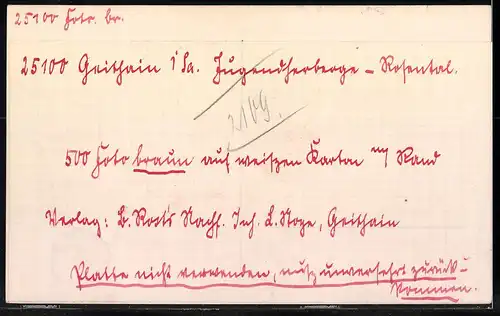 25100 Foto. br.
25100 Geithain i/Sa. Jugendherberge - Rosental.
2109.
500 Foto braun auf weißen Karton m/ Rand
Verlag: B. Rost's Nachf. Inh. L. Noze, Geithain
Platte nicht verwenden, muß unversehrt zurück-
kommen.